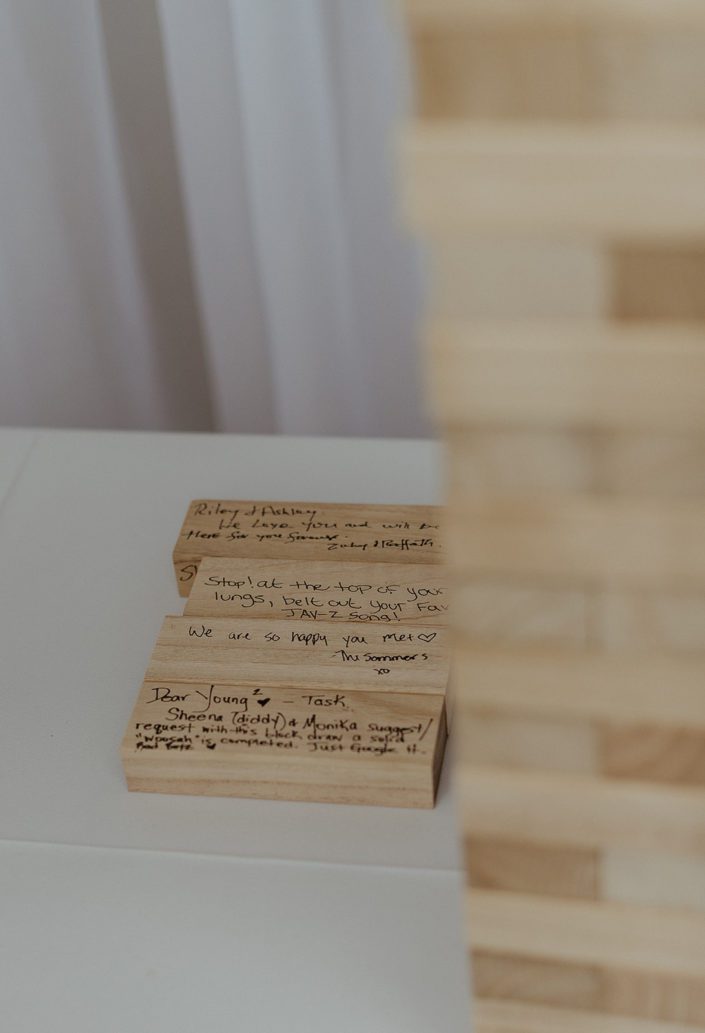 Riley & Ashley
We Love you and will be
Here for you forever.
S
Stop! at the top of your
lungs, belt out your Fav
JAY-Z song!
We are so happy you met ♡
- The Sommer's
xo
Dear Young² ♥ - Task
Sheena (diddy) & Monika suggest/
request with this block draw a solid
is completed. Just Google it.